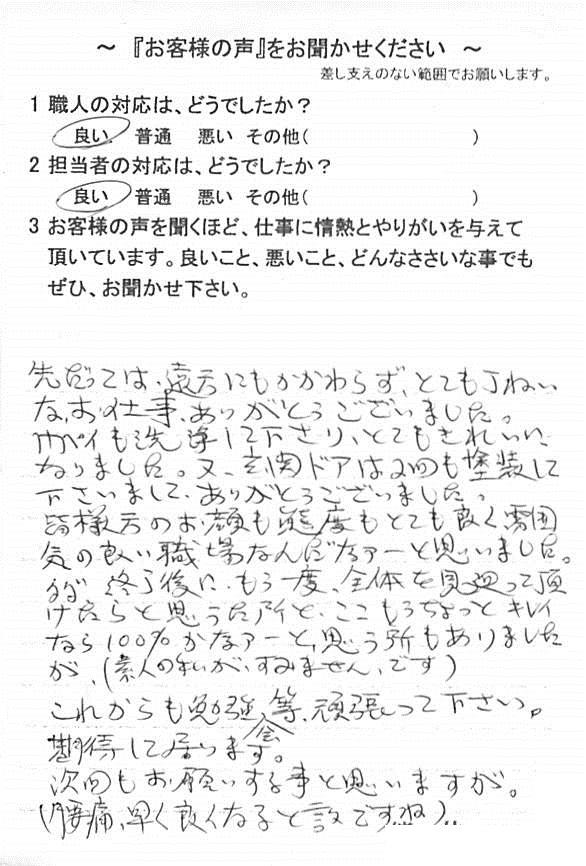 ～『お客様の声』をお聞かせください～
差し支えのない範囲でお願いします。
1 職人の対応は、どうでしたか？
良い 普通 悪い その他( )
2 担当者の対応は、どうでしたか？
良い 普通 悪い その他( )
3 お客様の声を聞くほど、仕事に情熱とやりがいを与えて
頂いています。良いこと、悪いこと、どんなささいな事でも
ぜひ、お聞かせ下さい。
先だっては、遠方にもかかわらず、とても丁ねい
な、お仕事、ありがとうございました。
も洗浄して下さり、とてもきれいに
なりました。又、玄関ドアは2回も塗装して
下さいまして、ありがとうございました。
皆様方のお顔も態度もとても良く雰囲
気の良い職場なんだなァーと思いました。
終了後に、もう一度、全体を見廻って頂
けたらと思うた所と、ここもうちょっとキレイ
なら100%かなァーと思う所もありました
が、(素人の私が、すみません、です)
これからも勉強会等、頑張って下さい。
期待して居います。
次回もお願いする事と思いますが。
(腰痛、早く良くなると ですね)...